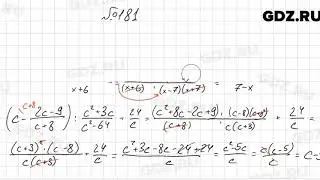 №181
GDZ.RU
x+6 (x+6) (x-7)(x+7) = 7-x
(c^{c+8} - \frac{2c-9}{c+8}) : \frac{c²+3c}{c²-64} + \frac{24}{c} = \frac{(c²+8c-2c+9)}{(c+8)} · \frac{(c-8)(c+8)}{c(c+3)} + \frac{24}{c} =
\frac{(c+3)² · (c-8)}{c(c+3)} + \frac{24}{c} = \frac{c²+3c-8c-24+24}{c} = \frac{c²-5c}{c} = \frac{c(c-5)}{c} = c-